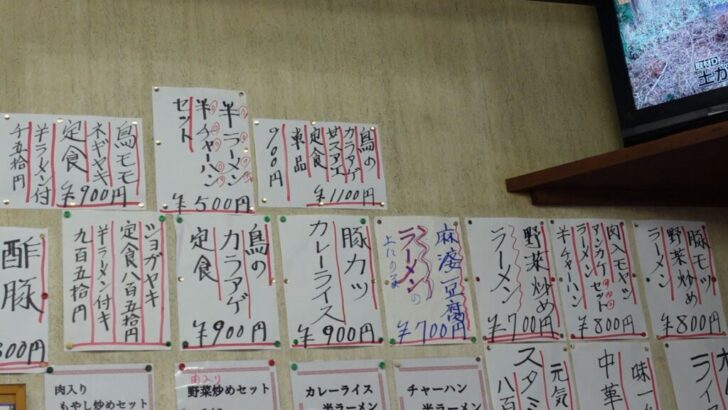 鳥モモ
ネギヤキ
定食
¥900円
半ラーメン付
千五拾円
半ラーメン
半チャーハン
セット
¥500円
鳥の
カラアゲ
甘スアエ
定食
¥1100円
単品
900円
酢豚
ショガヤキ
定食八百五拾円
半ラーメン付キ
九百五拾円
鳥の
カラアゲ
定食
¥900円
豚カツ
カレーライス
¥900円
麻婆豆腐
ラーメンの
¥700円
野菜炒め
ラーメン
¥700円
肉入モヤシ
アンカケ
セット
半チャーハン
¥800円
豚モツ
野菜炒め
ラーメン
¥800円
肉入り
もやし炒めセット
肉入り
野菜炒めセット
カレーライス
半ラーメン
チャーハン
半ラーメン
元気
スタミ
八百
味一
中華